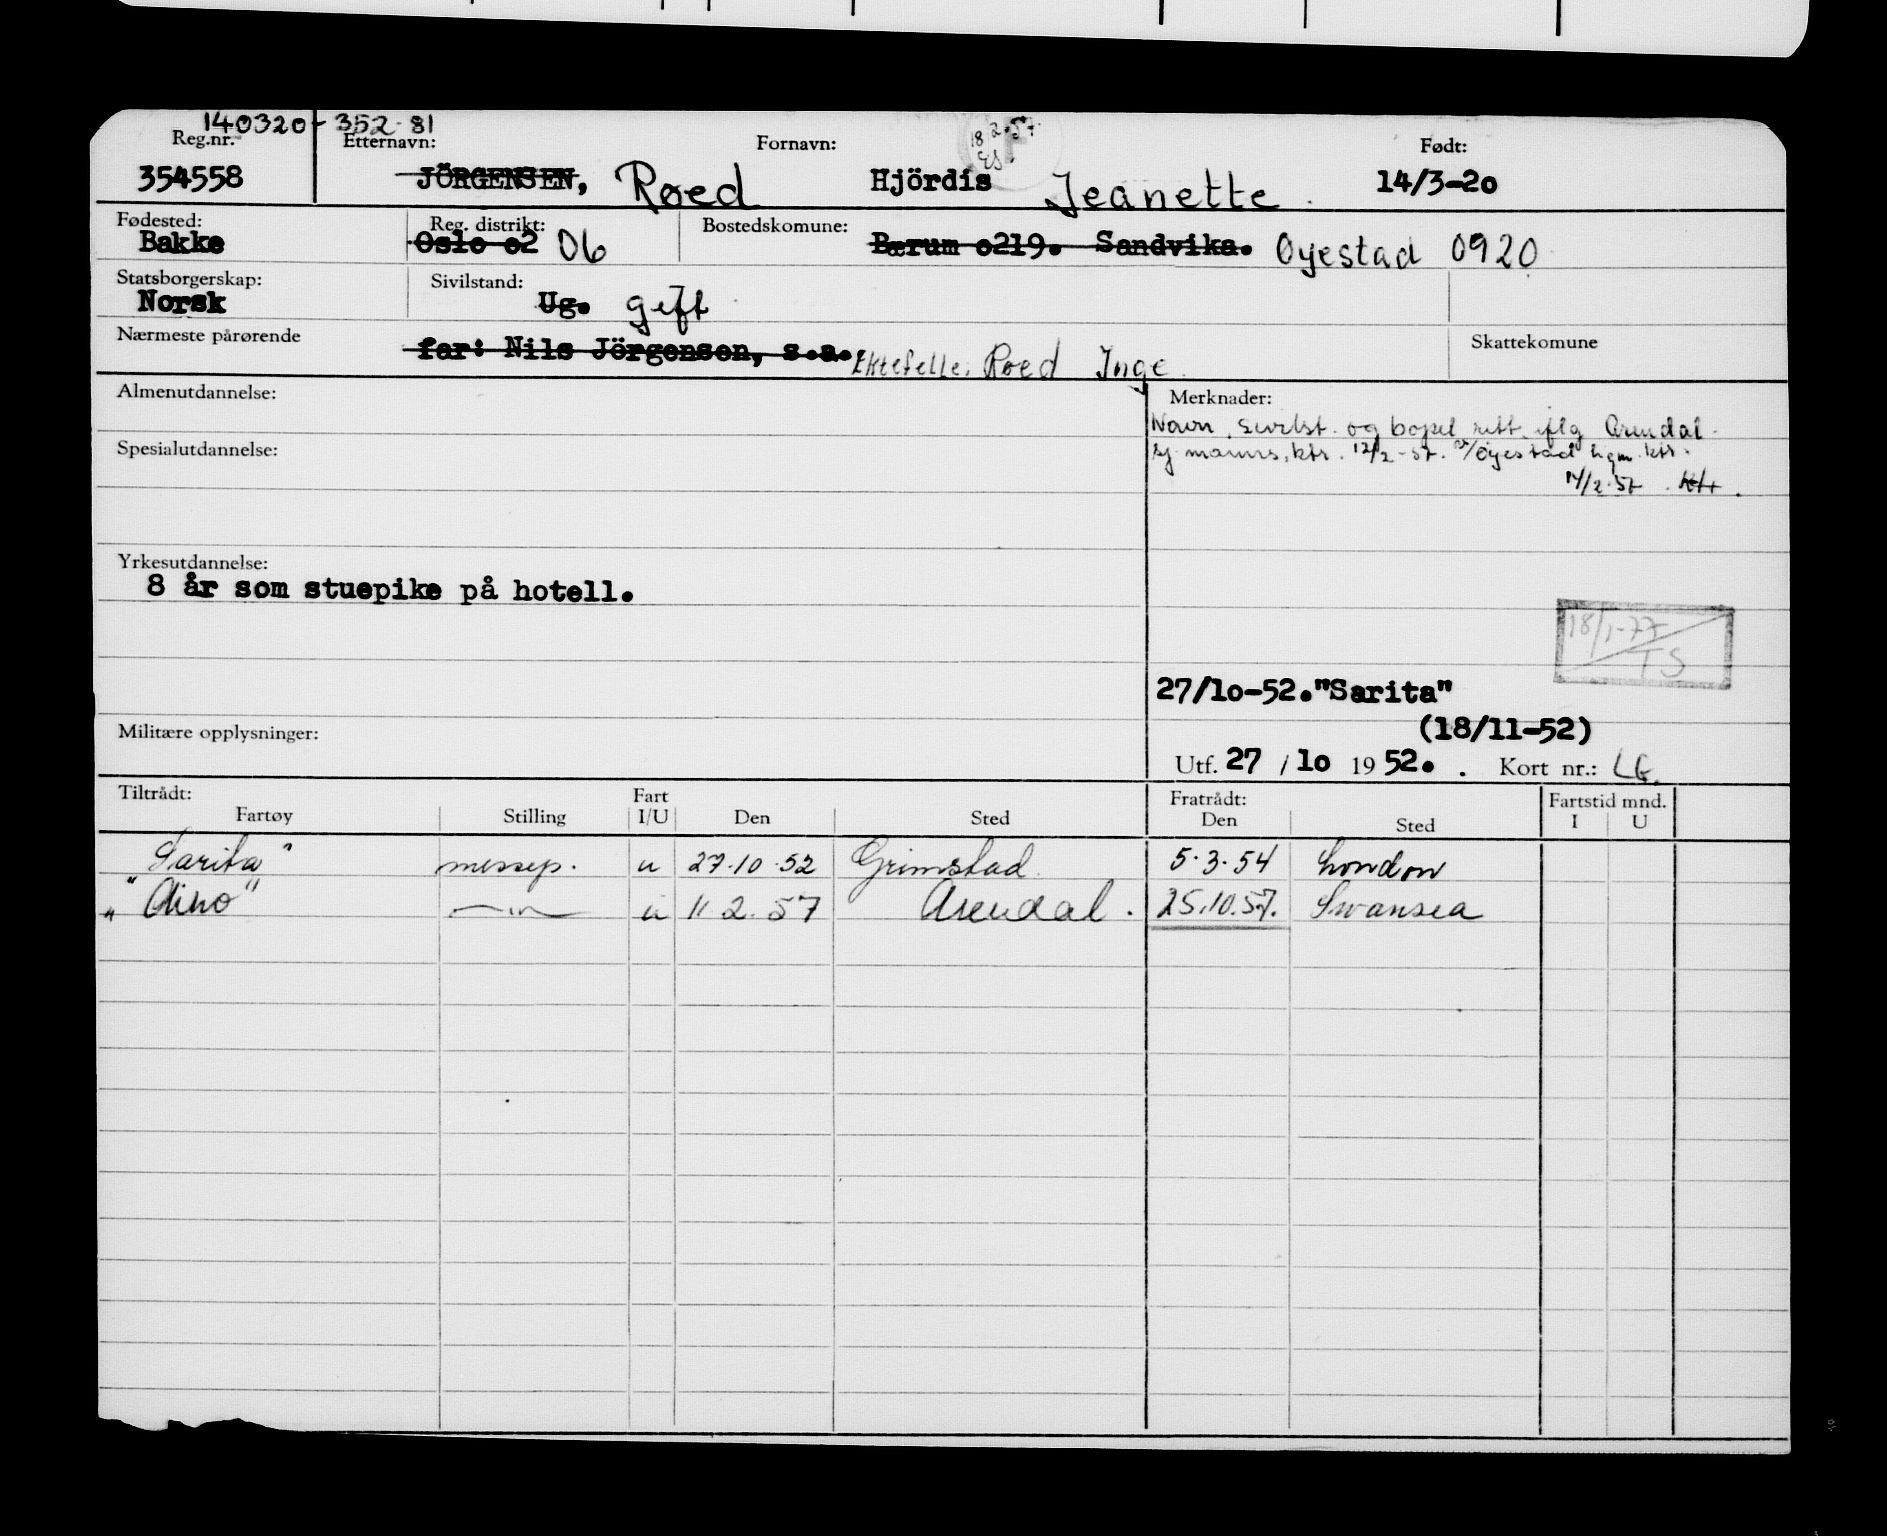 140320-352-81
Reg.nr. Etternavn: Fornavn: 18 2.57. F Født:
354558 JÖRGENSEN, Røed Hjördis Jeanette. 14/3-2o
Fødested: Reg. distrikt: Bostedskomune:
Bakke Oslo o2 06 Bærum o219. Sandvika. Øyestad 0920
Statsborgerskap: Sivilstand:
Norsk Ug. gift
Nærmeste pårørende Skattekomune
far: Nils Jörgensen, s.a. Ektefelle: Røed Inge.
Almenutdannelse: Merknader:
Navn, sivilst. og bopel rett. iflg Arendal
Spesialutdannelse: sj.manns.ktr. 12/2-57. Øyestad ktr.
/2.57
Yrkesutdannelse:
8 år som stuepike på hotell.
18/1-77
TS
27/1o-52."Sarita"
(18/11-52)
Militære opplysninger:
Utf. 27 / 1o 19 52. . Kort nr.:
Tiltrådt: Fart Fratrådt: Fartstid mnd.
Fartøy Stilling I/U Den Sted Den Sted I U
"Sarita" messep. u 27.10.52 Grimstad 5.3.54 London
"Aino" —"— u 11 2. 57 Arendal. 25.10.57. Swansea